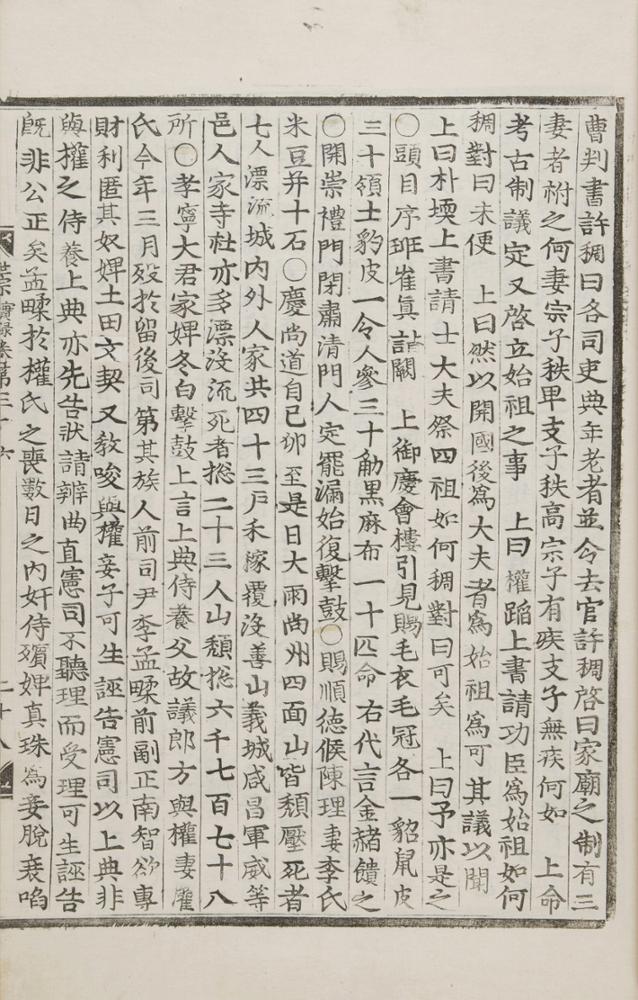 曹判書許稠曰各司吏典年老者並令去官許稠啓曰家廟之制有三
妻者祔之何妻宗子秩卑支子秩高宗子有疾支子無疾何如 上命
考古制議定又啓立始祖之事 上曰權蹈上書請功臣爲始祖如何
稠對曰未便 上曰然以開國後爲大夫者爲始祖爲可其議以聞
上曰朴堧上書請士大夫祭四祖如何稠對曰可矣 上曰予亦是之
○頭目序班崔眞詣闕 上御慶會樓引見賜毛衣毛冠各一貂鼠皮
三十領土豹皮一令人參三十觔黑麻布一十匹命右代言金赭饋之
○開崇禮門閉肅清門人定罷漏始復擊鼓○賜順德侯陳理妻李氏
米豆并十石○慶尚道自己卯至是日大雨尚州四面山皆頹壓死者
七人漂流城内外人家共四十三戶禾稼覆没善山義城咸昌軍威等
邑人家寺社亦多漂没流死者摠二十三人山頹摠六千七百七十八
所○孝寧大君家婢冬白擊鼓上言上典侍養父故議郎方與權妻權
氏今年三月歿於留後司第其族人前司尹李孟㽥前副正南智欲專
財利匿其奴婢土田文契又教唆與權妾子可生誣告憲司以上典非
與權之侍養上典亦先告狀請辨曲直憲司不聽理而受理可生誣告
旣非公正矣孟㽥於權氏之喪數日之内奸侍殯婢真珠爲妾脫衰啗
世宗實錄卷第三十六
二十八